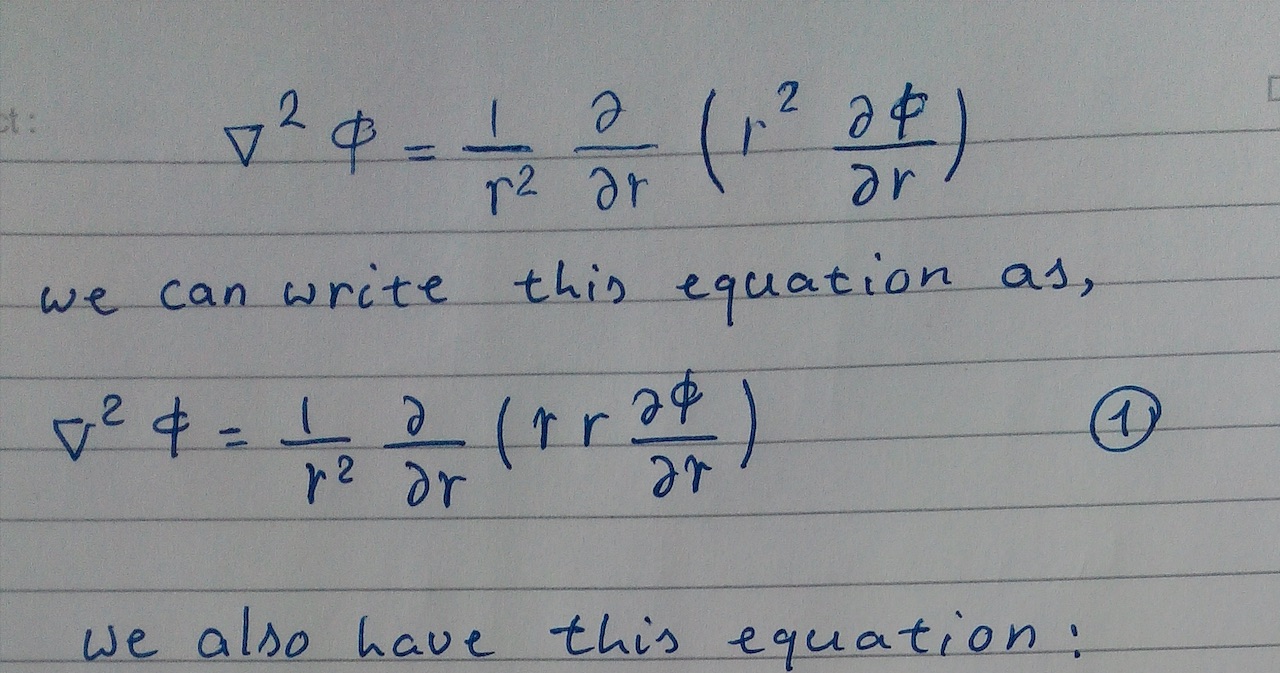 ct:
∇² ϕ = 1/r² ∂/∂r (r² ∂ϕ/∂r)
we can write this equation as,
∇² ϕ = 1/r² ∂/∂r (r r ∂ϕ/∂r) ①
we also have this equation: